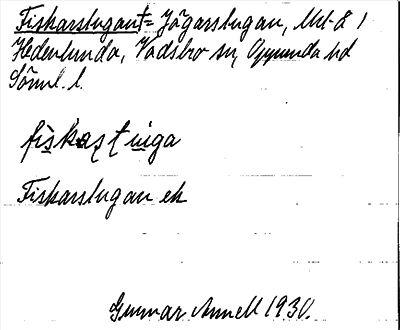 Fiskarstugan † = Jägarstugan, Utst å 1
Hedenlunda, Vadsbro sn, Oppunda hd
Söml. l.
fiskastuga
Fiskarstugan ek
Gunnar Annell 1930.